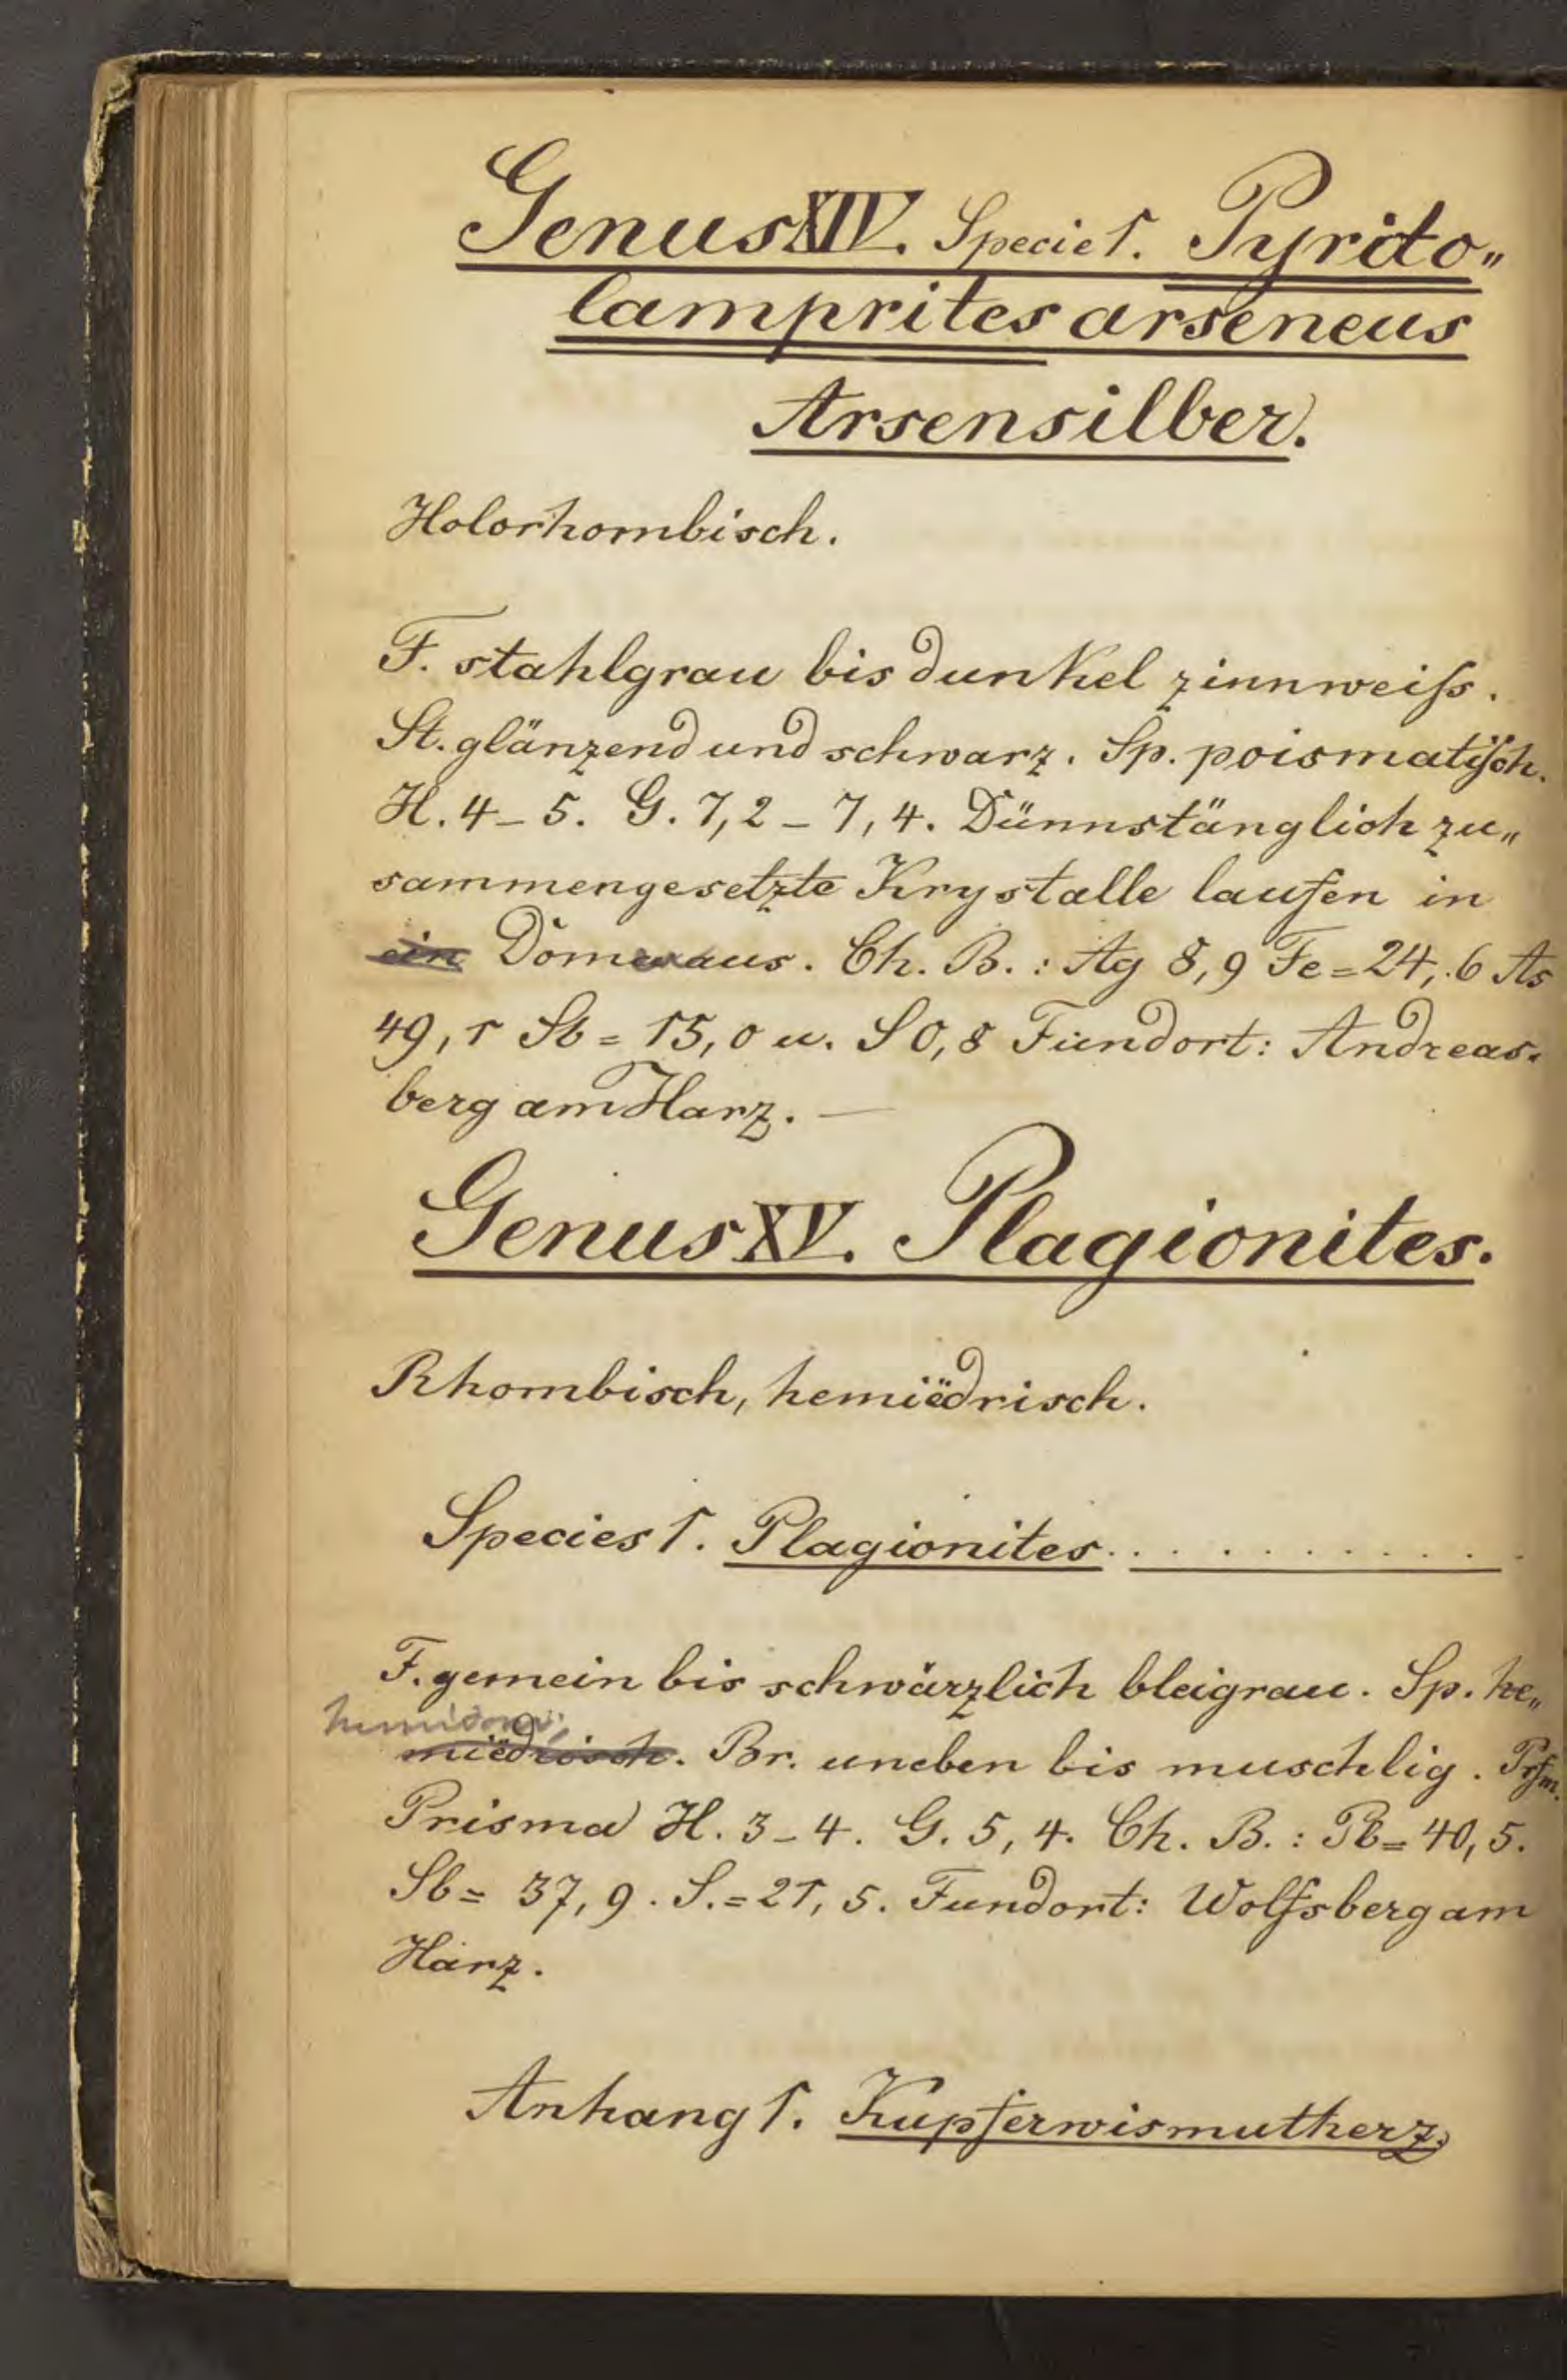 Genus XIV. Specie 1. Pyrito„
lamprites arseneus
Arsensilber.
Holorhombisch.
F. stahlgrau bis dunkel zinnweiſs.
St. glänzend und schwarz. Sp. poismatiſch.
H. 4–5. G. 7,2–7,4. Dünnstänglich zu„
sammengesetzte Krystalle laufen in
ein Domen aus. Ch. B.: Ag 8,9 Fe=24,.6 As
49,1 Sb=15,0 u. S 0,8 Fundort: Andreas-
berg am Harz. —
Genus XV. Plagionites.
Rhombisch, hemiëdrisch.
Species 1. Plagionites. . . . . . . . . . .
F. gemein bis schwärzlich bleigrau. Sp. he„
miëdrisch. Br. uneben bis muschlig.
Prisma H. 3–4. G. 5,4. Ch. B.: Pb=40,5.
Sb= 37,9. S.=21,5. Fundort: Wolfsberg am
Harz.
Anhang 1. Kupferwismutherz.